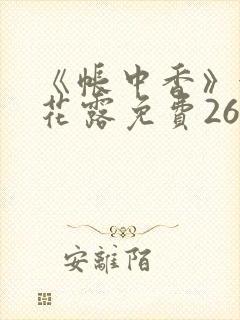 《帳中香》
花露免費26
安離陌